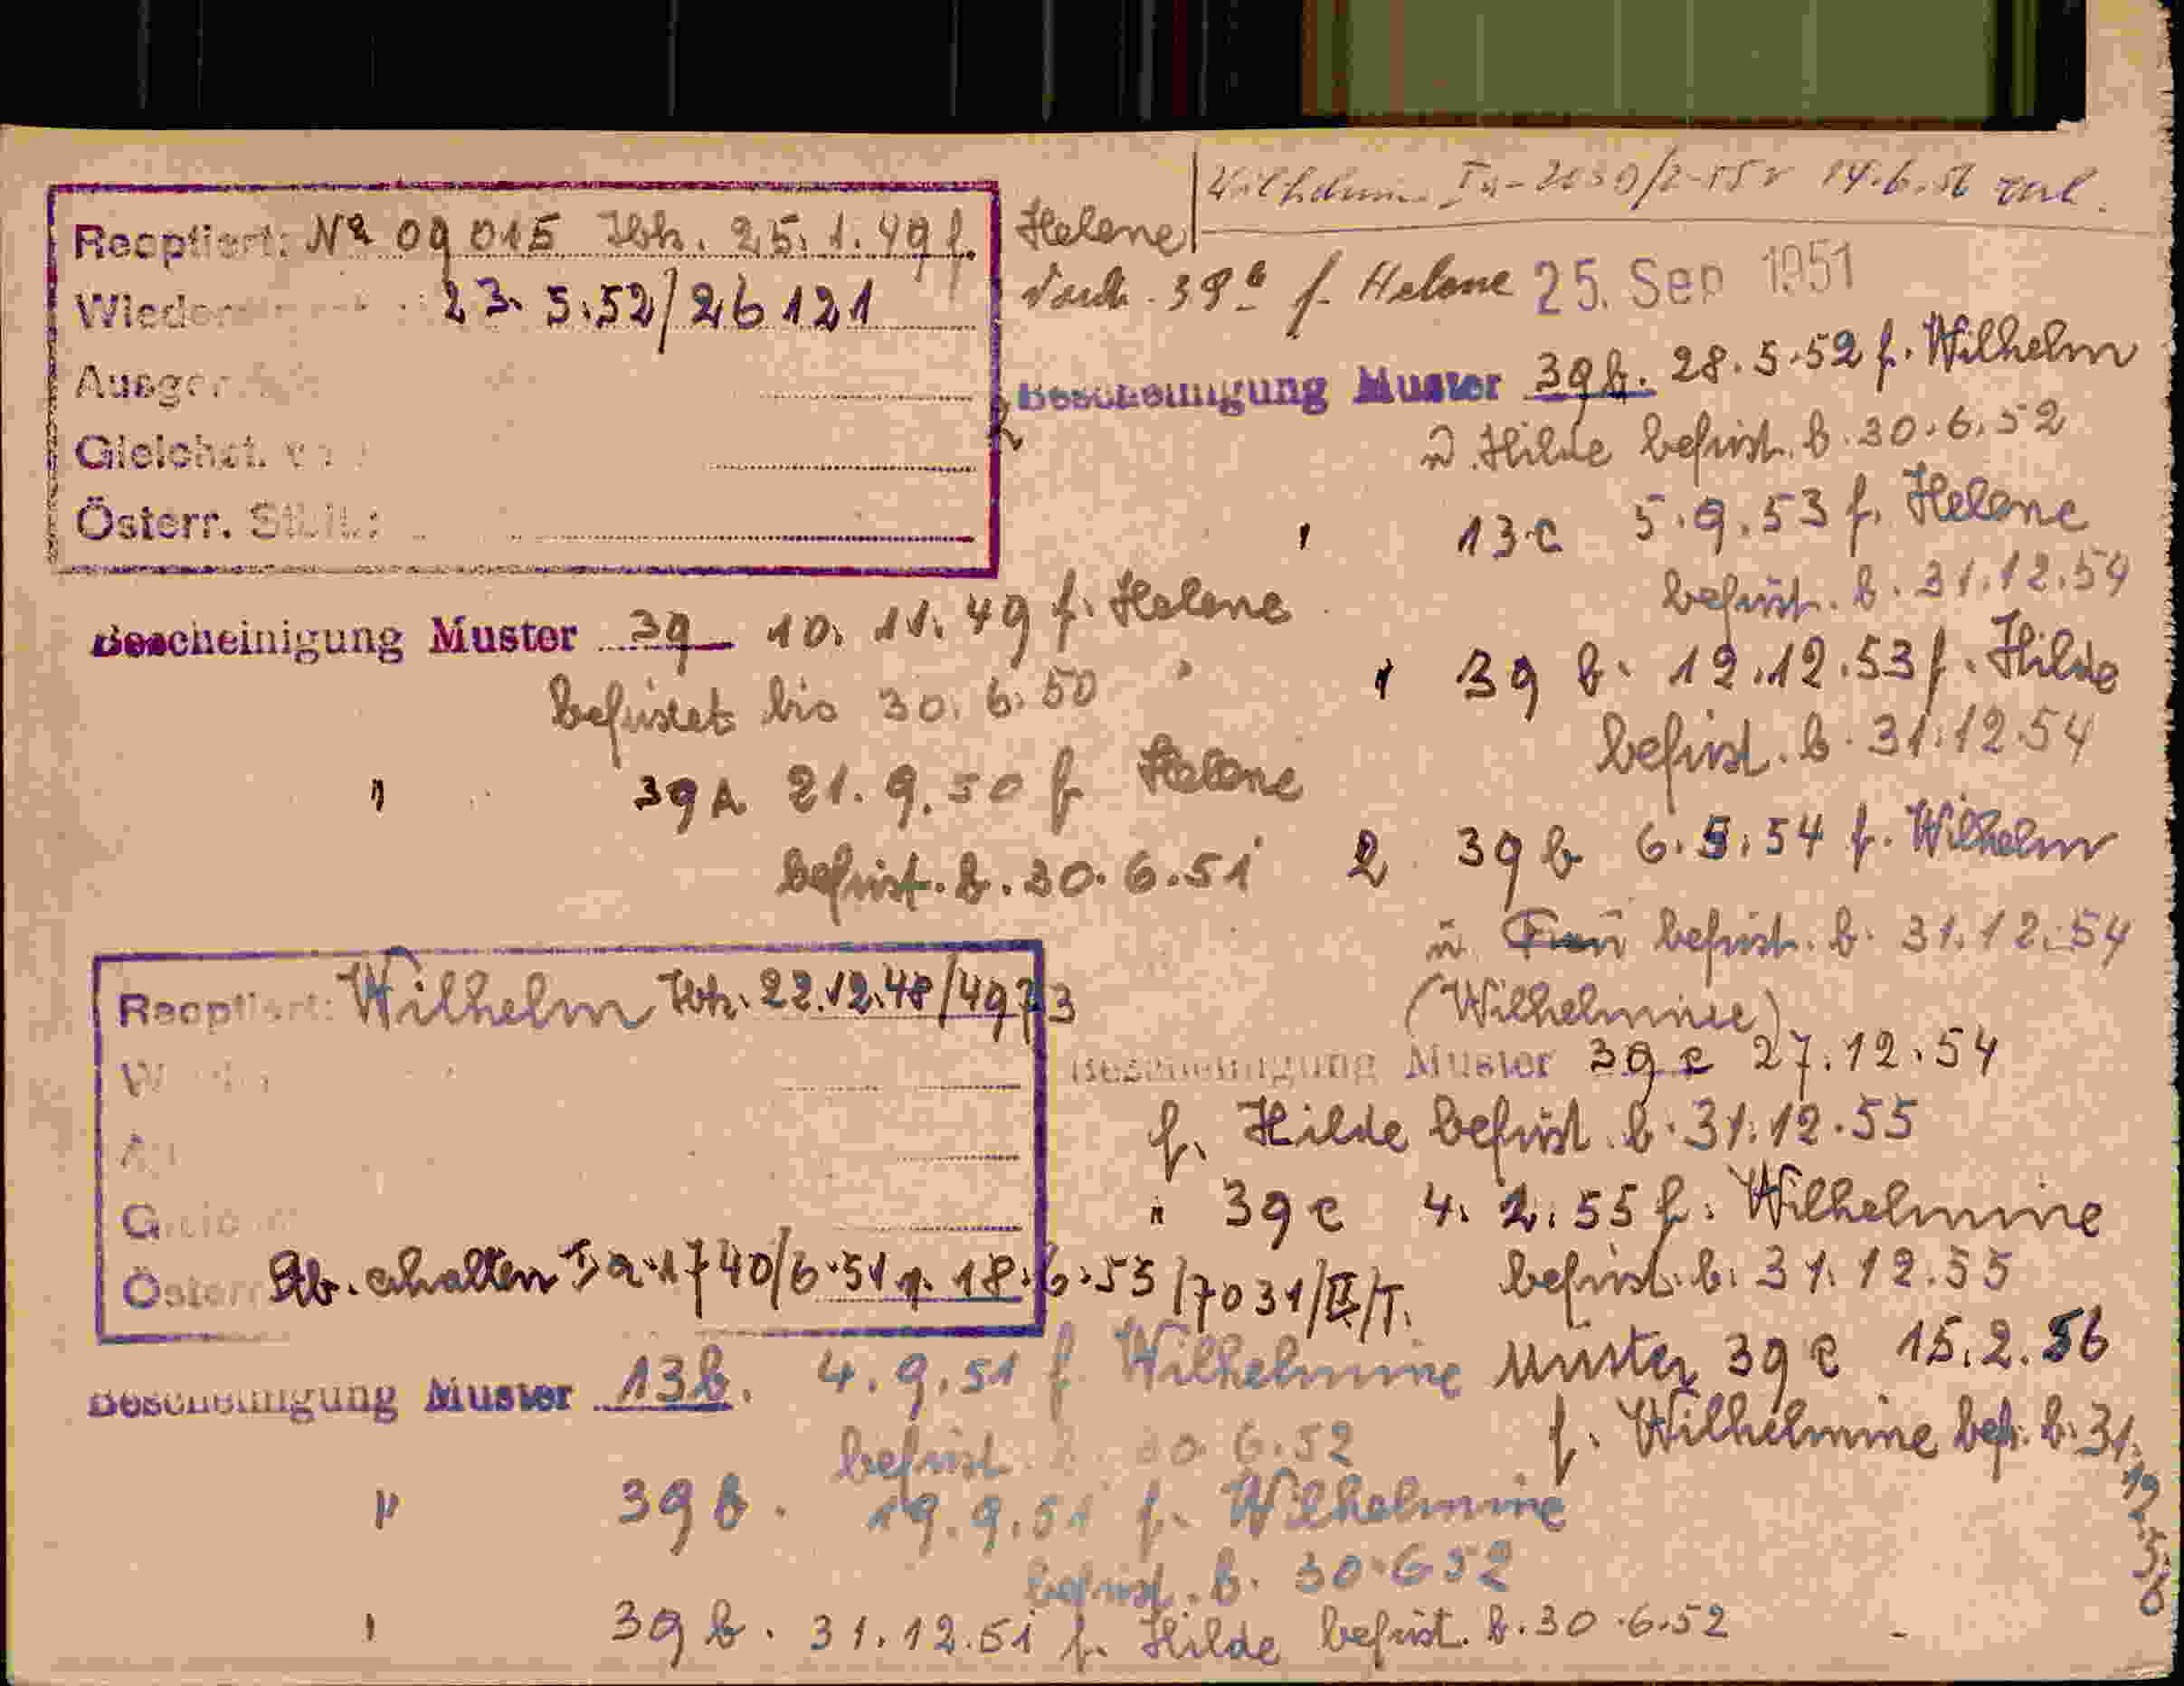 Wilhelm. Ia-2030/2-55 v 14.6.56
Reoptiert: No 09015 Ibk. 25.1.49 f. Helene
Wieder 23.5.52/26121
Ausger
Gleichst.
Österr. Stbü.:
f. Helene 25. Sep 1951
Bescheinigung Muster 39b. 28.5.52 f. Wilhelm
u. Hilde befrist. b. 30.6.52
" 13c 5.9.53 f. Helene
befrist. b. 31.12.54
" 39 b. 12.12.53 f. Hilde
befrist. b. 31.12.54
2 39 b 6.5.54 f. Wilhelm
u. Frau befrist. b. 31.12.54
(Wilhelmine)
Bescheinigung Muster 39 10.11.49 f. Helene
befristet bis 30.6.50
" 39A 21.9.50 f Helene
befrist. b. 30.6.51
Reoptiert: Wilhelm Ibk. 22.12.48/4973
W
A
G
Österr Stb. erhalten Ia-1740/6-51 v. 18.6.53/7031/II/T.
Bescheinigung Muster 39 c 27.12.54
f. Hilde befrist. b. 31.12.55
" 39 c 4.2.55 f. Wilhelmine
befrist. b. 31.12.55
Muster 39 c 15.2.56
f. Wilhelmine befr. b. 31.
12.
56
Bescheinigung Muster 13b. 4.9.51 f Wilhelmine
befrist. b. 30.6.52
" 39 b. 19.9.51 f. Wilhelmine
befrist. b. 30.6.52
" 39 b. 31.12.51 f. Hilde befrist. b. 30.6.52